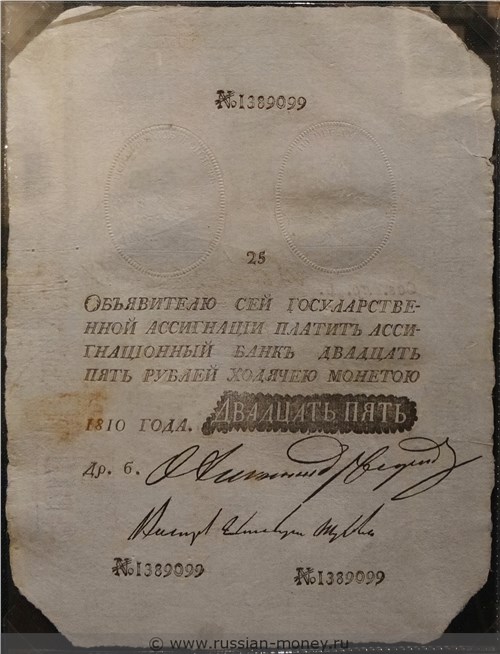 №1389099
25
Объявителю сей государстве-
нной ассигнацiи платитъ асси-
гнацiонный банкъ двадцать
пять рублей ходячею монетою
1810 года. ДВАДЦАТЬ ПЯТЬ
Др. б.
№1389099
№1389099
© www.russian-money.ru